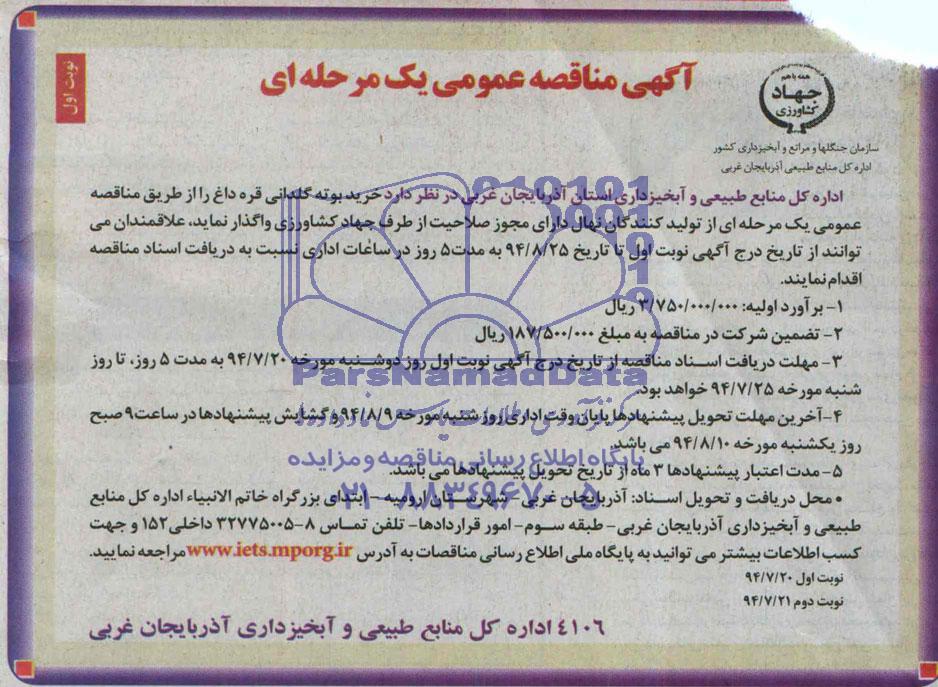 نوبت اول
آگهی مناقصه عمومی یک مرحله ای
همه با هم
جهاد
کشاورزی
سازمان جنگلها و مراتع و آبخیزداری کشور
اداره کل منابع طبیعی آذربایجان غربی
اداره کل منابع طبیعی و آبخیزداری استان آذربایجان غربی در نظر دارد خرید بوته گلدانی قره داغ را از طریق مناقصه
عمومی یک مرحله ای از تولید کنندگان نهال دارای مجوز صلاحیت از طرف جهاد کشاورزی واگذار نماید، علاقمندان می
توانند از تاریخ درج آگهی نوبت اول تا تاریخ ۹۴/۸/۲۵ به مدت ۵ روز در ساعات اداری نسبت به دریافت اسناد مناقصه
اقدام نمایند.
۱- برآورد اولیه: ۳/۷۵۰/۰۰۰/۰۰۰ ریال
۲- تضمین شرکت در مناقصه به مبلغ ۱۸۷/۵۰۰/۰۰۰ ریال
۳- مهلت دریافت اسناد مناقصه از تاریخ درج آگهی نوبت اول روز دوشنبه مورخه ۹۴/۷/۲۰ به مدت ۵ روز، تا روز
شنبه مورخه ۹۴/۷/۲۵ خواهد بود.
۴- آخرین مهلت تحویل پیشنهادها پایان وقت اداری روز شنبه مورخه ۹۴/۸/۹ و گشایش پیشنهادها در ساعت ۹ صبح
روز یکشنبه مورخه ۹۴/۸/۱۰ می باشد.
۵- مدت اعتبار پیشنهادها ۳ ماه از تاریخ تحویل پیشنهادها می باشد.
• محل دریافت و تحویل اسناد: آذربایجان غربی - شهرستان ارومیه - ابتدای بزرگراه خاتم الانبیاء اداره کل منابع
طبیعی و آبخیزداری آذربایجان غربی- طبقه سوم- امور قراردادها- تلفن تماس ۸-۳۲۷۷۵۰۰۵ داخلی ۱۵۲ و جهت
کسب اطلاعات بیشتر می توانید به پایگاه ملی اطلاع رسانی مناقصات به آدرس www.iets.mporg.ir مراجعه نمایید.
نوبت اول ۹۴/۷/۲۰
نوبت دوم ۹۴/۷/۲۱
۴۱۰۶ اداره کل منابع طبیعی و آبخیزداری آذربایجان غربی
ParsNamadData
پایگاه اطلاع رسانی مناقصه و مزایده
۰۲۱-۸۸۳۴۹۶۷۰-۵